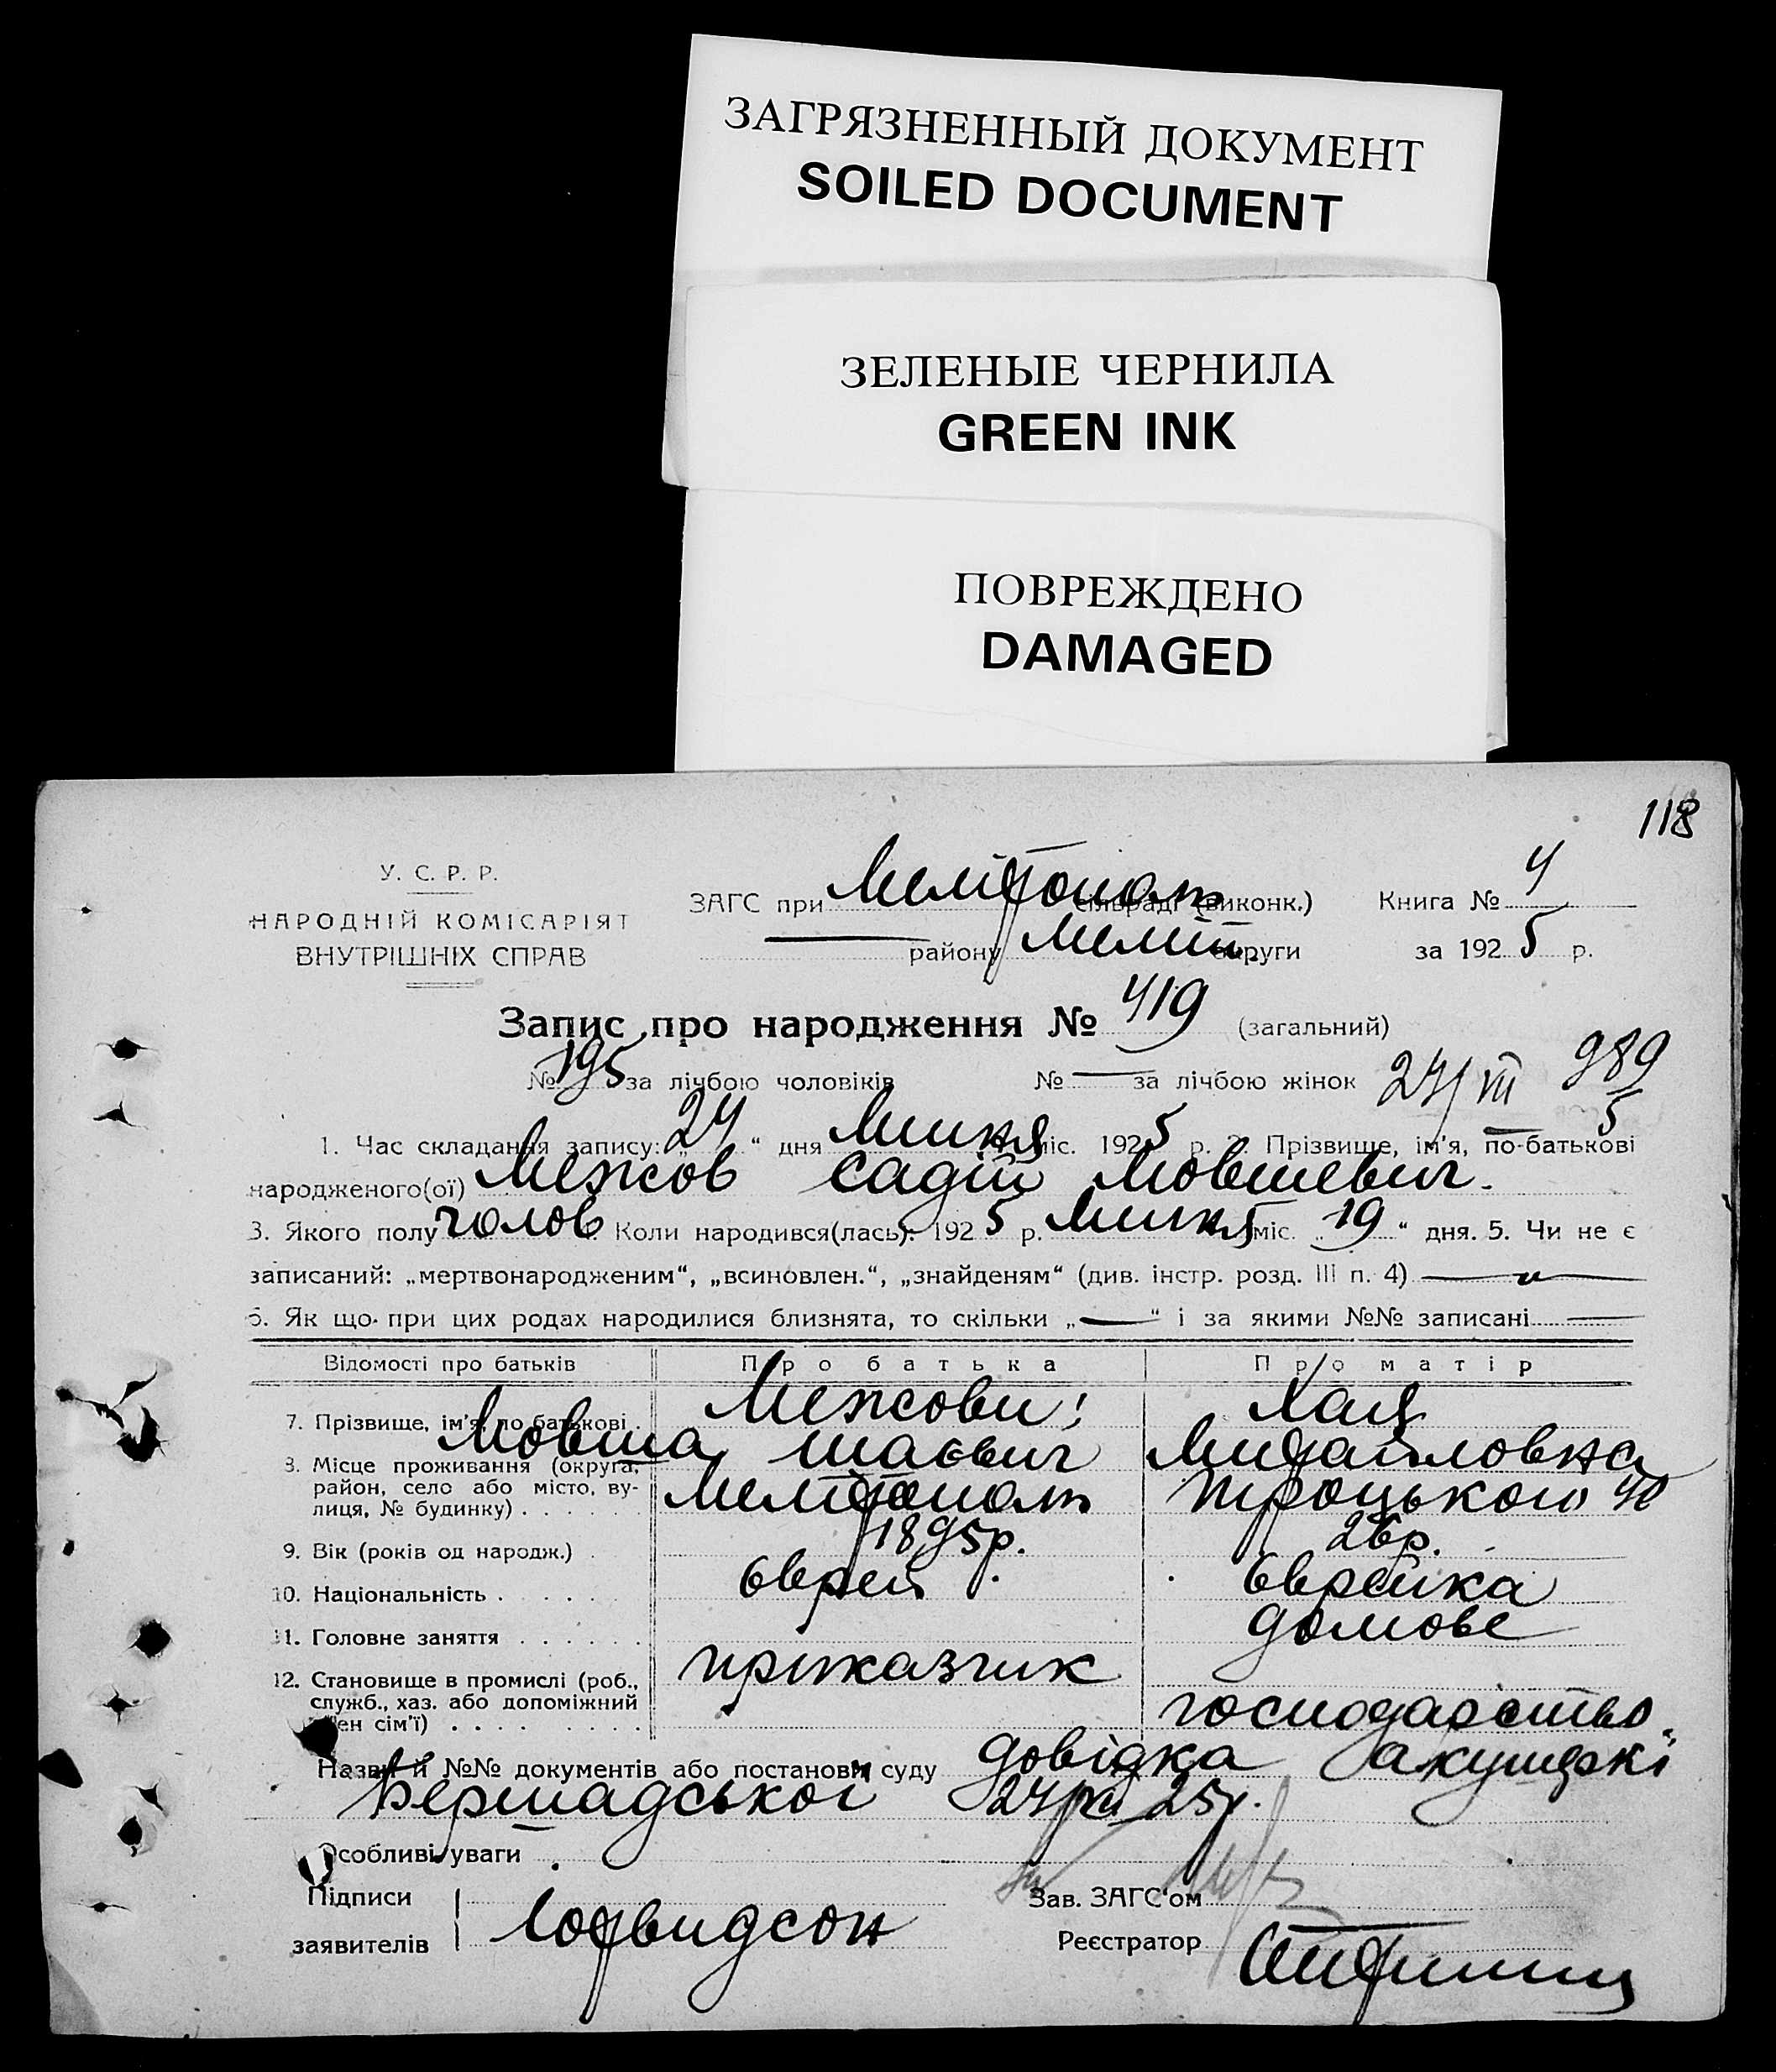 ЗАГРЯЗНЕННЫЙ ДОКУМЕНТ
SOILED DOCUMENT
ЗЕЛЕНЫЕ ЧЕРНИЛА
GREEN INK
ПОВРЕЖДЕНО
DAMAGED
118
У. С. Р. Р.
НАРОДНІЙ КОМІСАРІЯТ
ВНУТРІШНІХ СПРАВ
ЗАГС при Мелітопольск сільраді (виконк.) Книга № 4
— району Меліт. округи за 1925 р.
Запис про народження № 419 (загальний)
№ 195 за лічбою чоловіків № — за лічбою жінок 24/VII 989
5
1. Час складання запису: „24“ дня Липня міс. 1925 р. 2. Прізвище, ім'я, по-батькові
народженого(ої) Межов Садій Мовшевич.
3. Якого полу чолов 4. Коли народився(лась): 1925 р. Липня міс. „19“ дня. 5. Чи не є
записаний: „мертвонародженим“, „всиновлен.“, „знайденям“ (див. інстр. розд. III п. 4) —
6. Як що при цих родах народилися близнята, то скільки „—“ і за якими №№ записані —
Відомості про батьків Про батька Про матір
7. Прізвище, ім'я, по батькові Межови: Хая
Мовша Шаєвич Михайловна
8. Місце проживання (округа, район, село або місто, ву-
лиця, № будинку) Мелітополь Троцького 40
9. Вік (років од народж.) 1895р. 26р.
10. Національність Єврей Єврейка
11. Головне заняття домове
12. Становище в промислі (роб., приказчик
служб., хаз. або допоміжний
ен сім'ї) господарство
Назви й №№ документів або постанови суду довідка акушерки
Бершадської 24/VII 25р.
Особливі уваги
Підписи
заявителів
Зав. ЗАГС'ом
Реєстратор